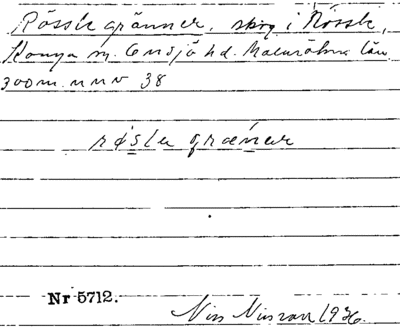 Rössle gränner, skog i Rössle,
Konga sn. Onsjö hd. Malmöhus län
300 m. nnv 38
røslɛ grænɛr
Nr 5712.
Nils Nilsson 1936.